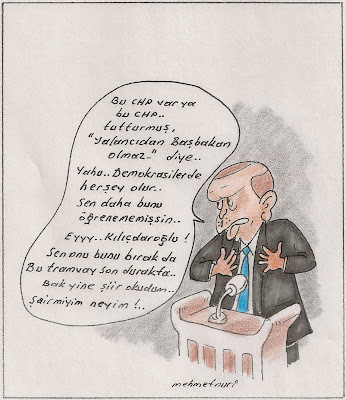 Bu CHP var ya
bu CHP..
tutturmuş,
"Yalancıdan Başbakan
olmaz." diye..
Yahu.. Demokrasilerde
herşey olur..
Sen daha bunu
öğrenememişsin..
Eyyy.. Kılıçdaroğlu !
Sen onu bunu bırak da
Bu tramvay son durakta..
Bak yine şiir okudum..
Şair miyim neyim !..
mehmetnuri